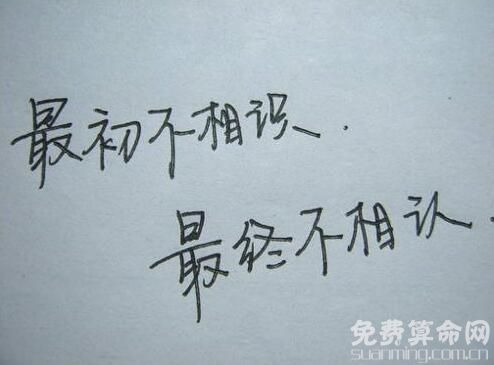 最初不相识.
最终不相认.
免费算命网
suanming.com.cn